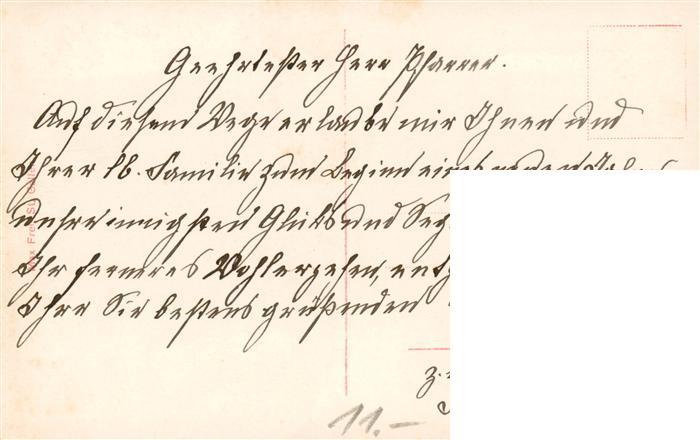 Geehrtester Herr Pfarrer.
Auf diesem Wege erlaube mir Ihnen und
Ihrer lb. Familie zum Beginn eines neuen
innigsten Glücks und
Ihr ferneres Wohlergehen,
Ihre Sie bestens grüßenden
11.-